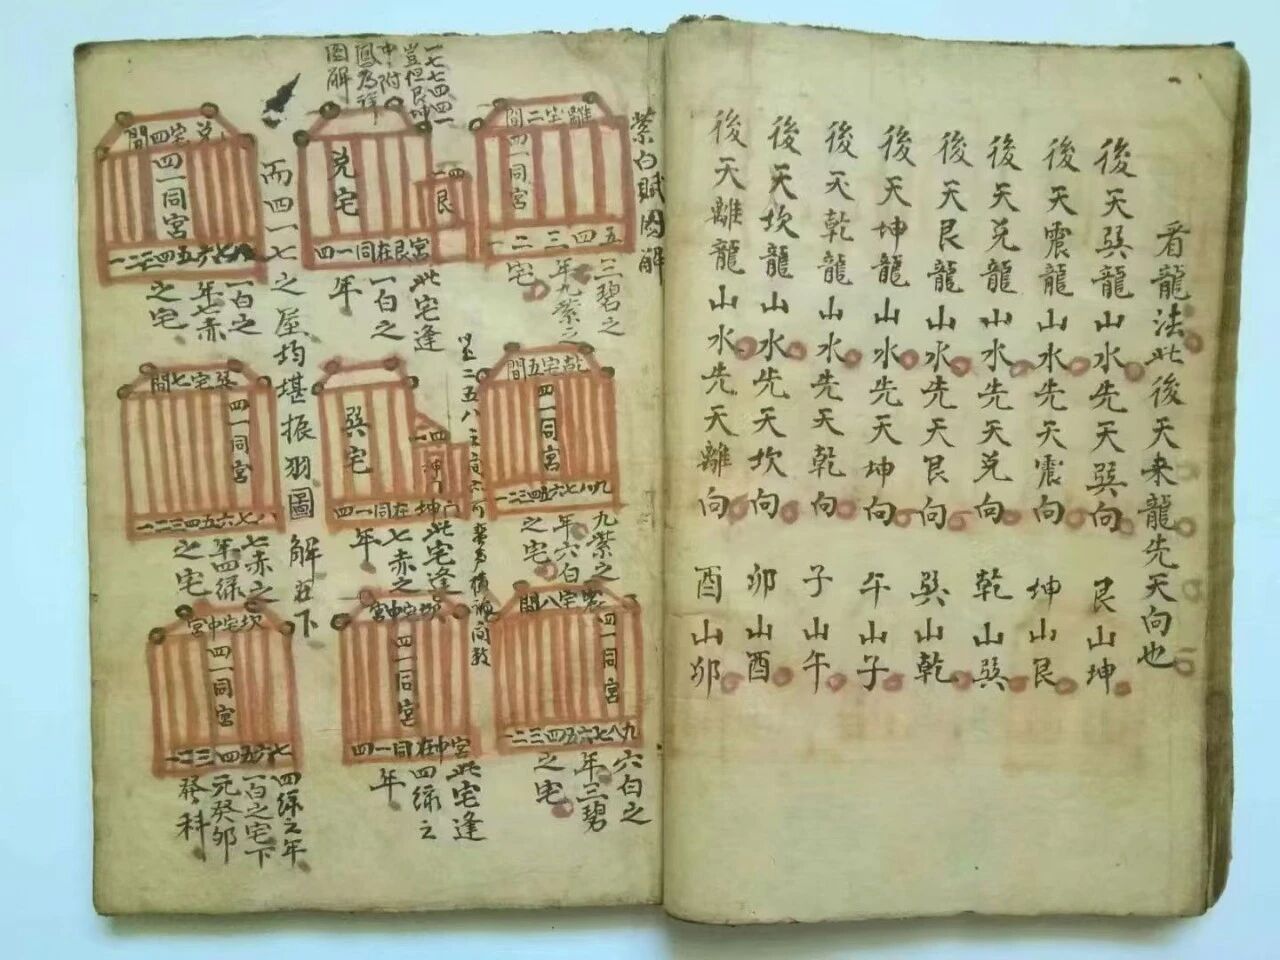 看龍法此後天来龍先天向也
後天巽龍山水先天巽向　艮山坤
後天震龍山水先天震向　坤山艮
後天兑龍山水先天兑向　乾山巽
後天艮龍山水先天艮向　巽山乾
後天坤龍山水先天坤向　午山子
後天乾龍山水先天乾向　子山午
後天坎龍山水先天坎向　卯山酉
後天離龍山水先天離向　酉山卯
紫白賦図解
離宅二間
四一同宮
一二三四五
三碧之
年九紫之
宅
一七七四四一
豈但艮坤
中附
鳳為祥
図解
兑宅
四一
艮
宮艮在同一四
此宅逢
一白之
年
而四一七之屋均堪振羽圖解在下
兑宅四間
四一同宮
一白之
年七赤
之宅
乾宅五間
四一同宮
九紫之
年六白
之宅
巽宅
四一
坤
坤在同一四
此宅逢
七赤之
年
巽宅七間
四一同宮
七赤之
年四緑
之宅
震宅八間
四一同宮
九八七六五四三二一
六白之
年三碧
之宅
坎宅中宮
四一同宮
宮中在同一四
此宅逢
四緑之
年
坎宅中宮
四一同宮
四緑之年
一白之宅下
元癸卯
發科